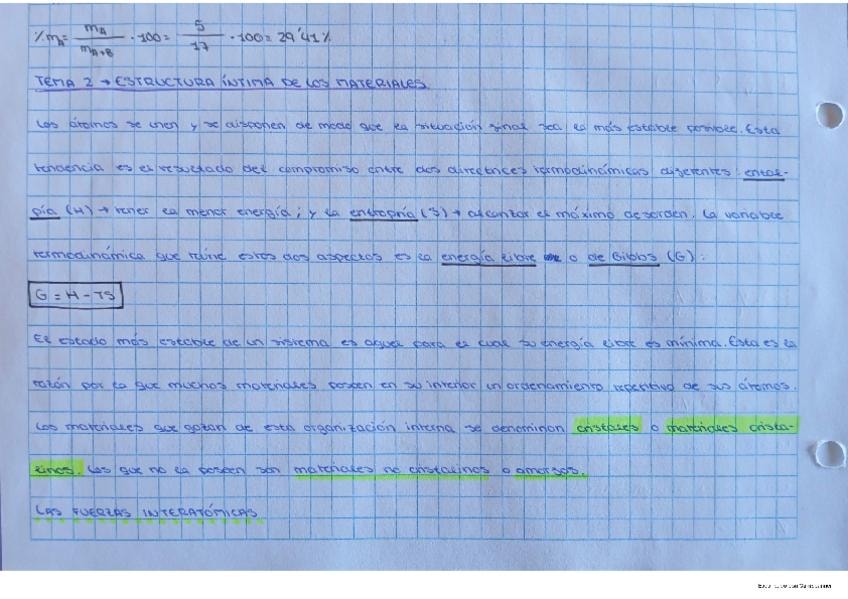 %mA = mA / mA+B · 100 = 5 / 17 · 100 = 29'41%
TEMA 2 → ESTRUCTURA ÍNTIMA DE LOS MATERIALES.
Los átomos se unen y se disponen de modo que la situación final sea la más estable posible. Esta
tendencia es el resultado del compromiso entre dos directrices termodinámicas diferentes: ental-
pía (H) → tener la menor energía; y la entropía (S) → alcanzar el máximo desorden. La variable
termodinámica que reúne estos dos aspectos es la energía libre o de Gibbs (G):
G = H - TS
El estado más estable de un sistema es aquel para el cual su energía libre es mínima. Esta es la
razón por la que muchos materiales poseen en su interior un ordenamiento repetitivo de sus átomos.
Los materiales que gozan de esta organización interna se denominan cristales o materiales crista-
linos. Los que no la poseen son materiales no cristalinos o amorfos.
LAS FUERZAS INTERATÓMICAS